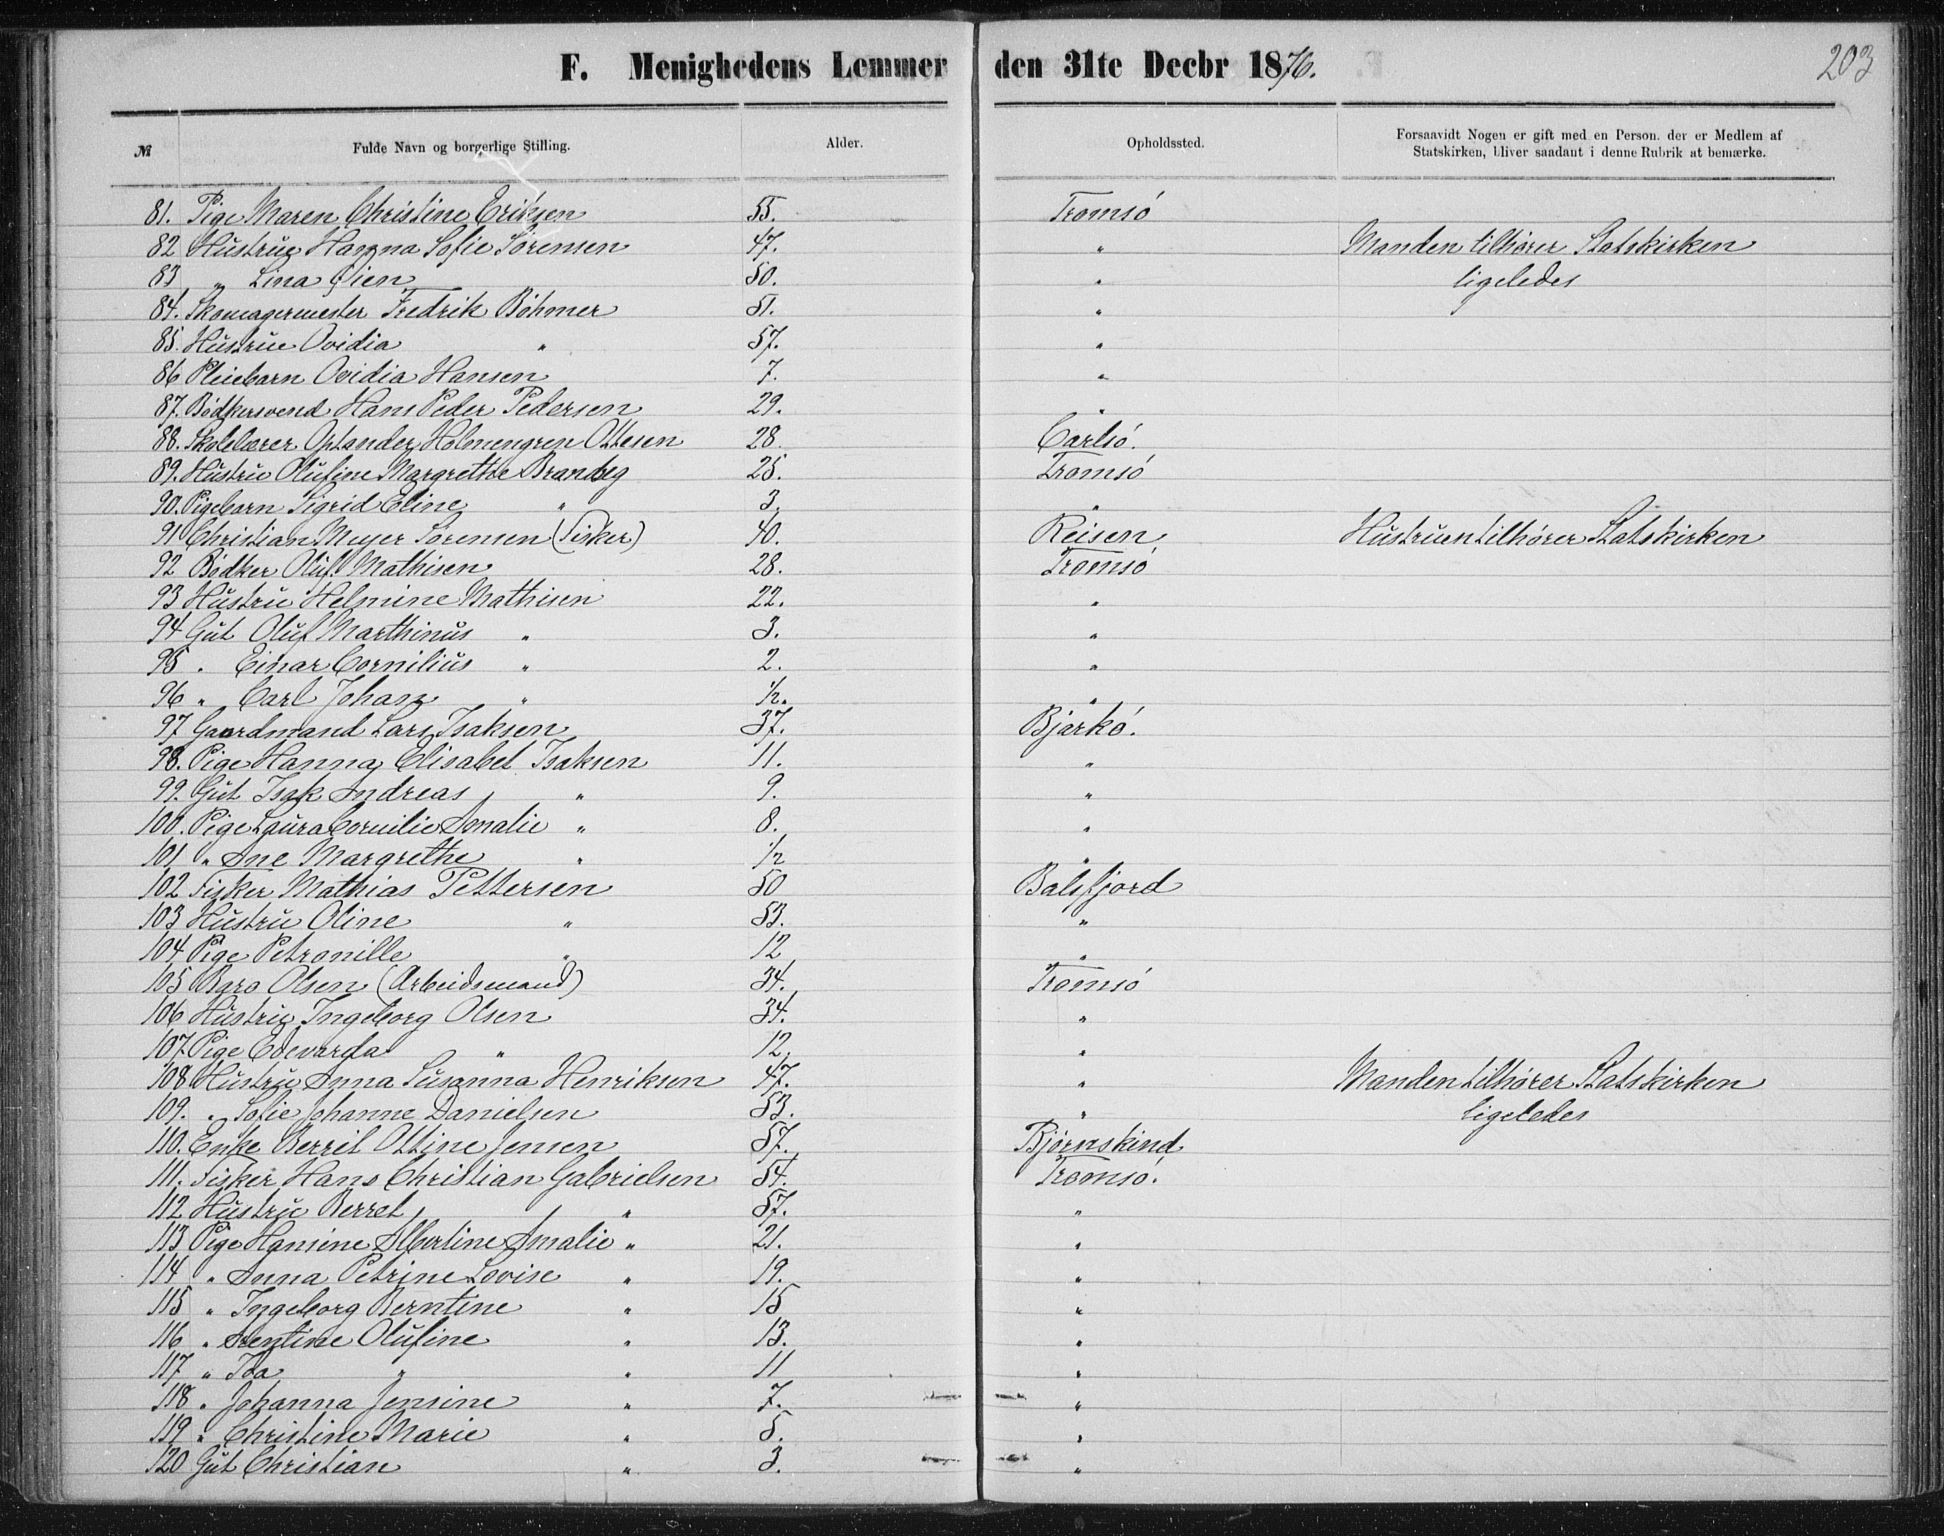 203
F. Menighedens Lemmer den 31te Decbr 1876.
№ Fulde Navn og borgerlige Stilling. Alder. Opholdssted. Forsaavidt Nogen er gift med en Person, der er Medlem af
Statskirken, bliver saadant i denne Rubrik at bemærke.
81. Pige Maren Christine Eriksen 55. Tromsö
82 Hustrue Hanna Sofie Sörensen 47. " Manden tilhører Statskirken
83 " Lina Öien 50. " ligeledes
84. Skomagermester Fredrik Böhmer 51. "
85. Hustrue Ovidia " 57. "
86 Pleiebarn Ovidia Hansen 7. "
87. Bödkersvend Hans Peder Pedersen 29. "
88. Skolelærer Holmengren Ottesen 28 Carlsö.
89. Hustru Olufine Margrethe 25. Tromsö
90. Pigebarn Sigrid Eline " 3. "
91 Christian Meyer Sörensen (Fisker) 40. Reisen Hustruen tilhører Statskirken
92 Bödker Oluf Mathisen 28. Tromsö
93 Hustru Helmine Mathisen 22. "
94 Gut Oluf Marthinus " 3. "
95 " Einar Cornilius " 2. "
96 " Carl Johan " 1/2. "
97 Gaardmand Lars Isaksen 37. Bjarkö.
98. Pige Hanna Elisabet Isaksen 11. "
99. Gut Isak Andreas " 9. "
100. Pige Laura Cornilie Amalie " 8. "
101 " Ane Margrethe " 1/2 "
102 Fisker Mathias Pettersen 50 Balsfjord
103 Hustru Oline " 53. "
104 Pige Petronille " 12 "
105 Baro Olsen (Arbeidsmand) 34. Tromsö
106 Hustru Ingeborg Olsen 34. "
107 Pige Edevarda " 12. "
108 Hustru Anna Susanna Henriksen 47. " Manden tilhører Statskirken
109. " Sofie Johanne Danielsen 53. " ligeledes
110. Enke Berrit Ottine Jensen 57. Bjørnskind
111. Fisker Hans Christian Gabrielsen 54. Tromsö.
112 Hustru Berret " 57. "
113 Pige Hansine Albertine Amalie " 21. "
114 " Anna Petrine Lovise " 19. "
115 " Ingeborg Berntine " 15 "
116 " Arentine Olufine " 13. "
117 " Ida " " 11 "
118 " Johanna Jensine " 7. "
119 " Christine Marie " 5. "
120 Gut Christian " 3. "